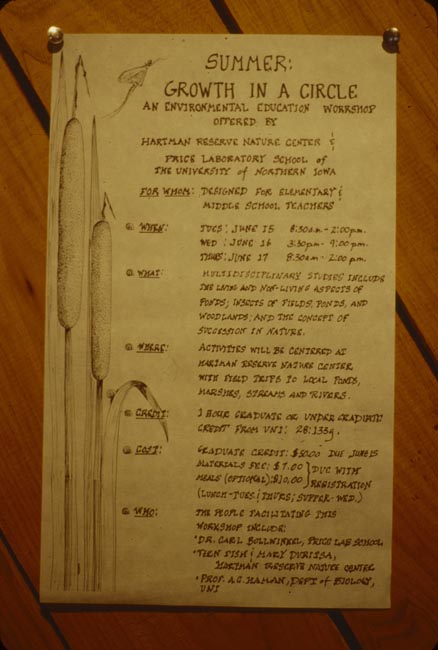 SUMMER:
GROWTH IN A CIRCLE
AN ENVIRONMENTAL EDUCATION WORKSHOP
OFFERED BY
HARTMAN RESERVE NATURE CENTER &
PRICE LABORATORY SCHOOL of
THE UNIVERSITY of NORTHERN IOWA
FOR WHOM: DESIGNED FOR ELEMENTARY &
MIDDLE SCHOOL TEACHERS
WHEN: TUES: JUNE 15 8:30a.m - 2:00p.m.
WED: JUNE 16 3:30p.m - 9:00p.m.
THURS: JUNE 17 8:30a.m - 2:00 p.m.
WHAT: MULTIDISCIPLINARY STUDIES INCLUDE
THE LIVING AND NON-LIVING ASPECTS OF
PONDS; INSECTS OF FIELDS, PONDS, AND
WOODLANDS; AND THE CONCEPT OF
SUCCESSION IN NATURE.
WHERE: ACTIVITIES WILL BE CENTERED AT
HARTMAN RESERVE NATURE CENTER
WITH FIELD TRIPS TO LOCAL PONDS,
MARSHES, STREAMS AND RIVERS.
CREDIT: 1 HOUR GRADUATE OR UNDERGRADUATE
CREDIT FROM UNI: 28:133g.
COST: GRADUATE CREDIT: DUE JUNE 15
MATERIALS FEE: $7.00 } DUE WITH
MEALS (OPTIONAL): $10.00 } REGISTRATION
(LUNCH-TUES & THURS; SUPPER-WED.)
WHO: THE PEOPLE FACILITATING THIS
WORKSHOP INCLUDE:
• DR. CARL BOLLWINKEL, PRICE LAB SCHOOL
• FISH & MARY
HARTMAN RESERVE NATURE CENTER
• PROF. A.C. HAMAN, DEPT of BIOLOGY,
UNI